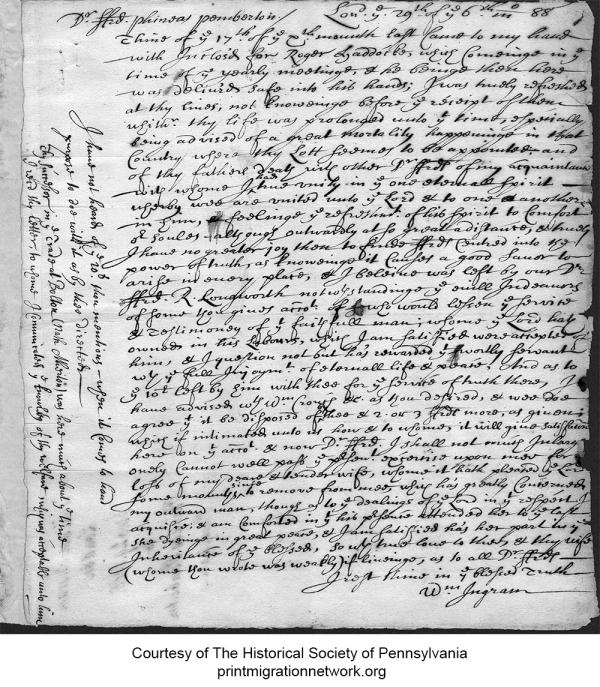 Dr ffrd. phineas pemberton / Lon. ye. 29th of ye 6th mo 88
Thine of ye 17th of ye month last Came to my hand
with Inclosed for Roger Haddock, which Comeinge in ye
time of ye yearly meetinge, & he beinge then here
was delivred safe into his hands; I was truely refreshed
at thy lines, not knoweinge before ye receipt of them
whithr. thy life was prolonged unto ye time, especially
being advised of a great mortality happeninge in that
Country where thy Lott seemes to be appointed and
of thy fathers death with other Dr ffrds of my acquaintance
with whome I had true vnity in ye one eternall spirit
wherby wee are vnited unto ye Lord & to one another
in him, feelinge ye refreshmt of his Spirit to Comfort
or soules although outwardly at so great a distance, & truely
I have no greater joy then to finde ffrds Centred into the
power of truth, as knoweinge it Causes a good savor to
arise in every place, & I beleive was left by our Dr
ffrd R. Longworth notwithstandinge ye evill Indeavors
of some you gives acct. of who would lessen ye service
& Testimoney of yt faithfull man, whome ye Lord hath
owned in his Labours, which I am satisfied were accepted of
him, & I question not but has rewarded yt worthy servant
wth ye full Injoymt of eternall life & peace. And as to
ye 10s left by him with thee for ye service of truth there, I
have advised wth Wm &c. as you desired, & wee doe
agree yt it be disposed of thee & 2. or 3 ffrds more, as given;
which if intimated unto us how & to whome, it will give satisfaction
here on yt acct. & now Dr ffrd. I shall not much Inlarge
onely Cannot well pass ye psent exercise upon mee for
loss of my deare & tender wife, whome it hath pleased ye Lord
some months since to remove from mee, which has greatly Concerned
my outward man, though as to ye dealings of ye Lord in yt respect I
acquiesce; & am Comforted in yt his presence attended her to ye last
she dyeinge in great peace, & I am satisfied has her part in ye
Inheritance of ye blessed, so wth true love to thee, & thy wife
(whome you wrote was weakly) if liveinge, as to all Dr ffrds
I rest thine in ye blessed Truth
Wm Ingram
I have not heard of ye 20s thou mentions, when it Comes to hand
prepare to doe with it as by thee directed
thy hath was here much about ye time
I recd the Letter, to whome I Comunicated ye knowledge of thy welfare which was acceptable unto him
Courtesy of The Historical Society of Pennsylvania
printmigrationnetwork.org